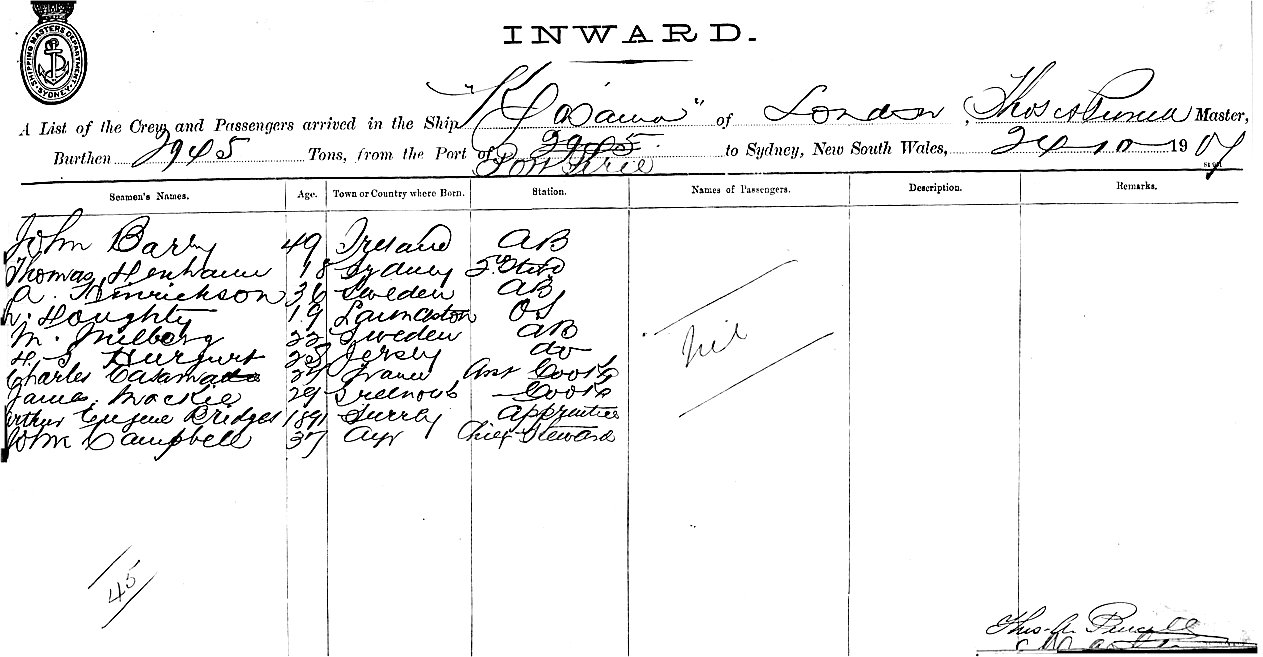 SHIPPING MASTERS DEPARTMENT SYDNEY
INWARD.
A List of the Crew and Passengers arrived in the Ship of London, Thos A Master,
Burthen 2945 Tons, from the Port of 2945 Port Pirie to Sydney, New South Wales, 24 10 1907
Seamen's Names. Age. Town or Country where Born. Station. Names of Passengers. Description. Remarks.
John Barry 49 Ireland AB
Thomas 18 Sydney
A. Hinrickson 36 Sweden AB
Houghty 19 OS
M. Milberg 22 Sweden AB
H. S. Jersey do
Charles France Asst Cook
James Mackie 29 Greenock Cook
Arthur Eugene Bridges Surrey Apprentice
John Campbell 37 Ayr Chief Steward
Nil
45
Thos. A. Purcell